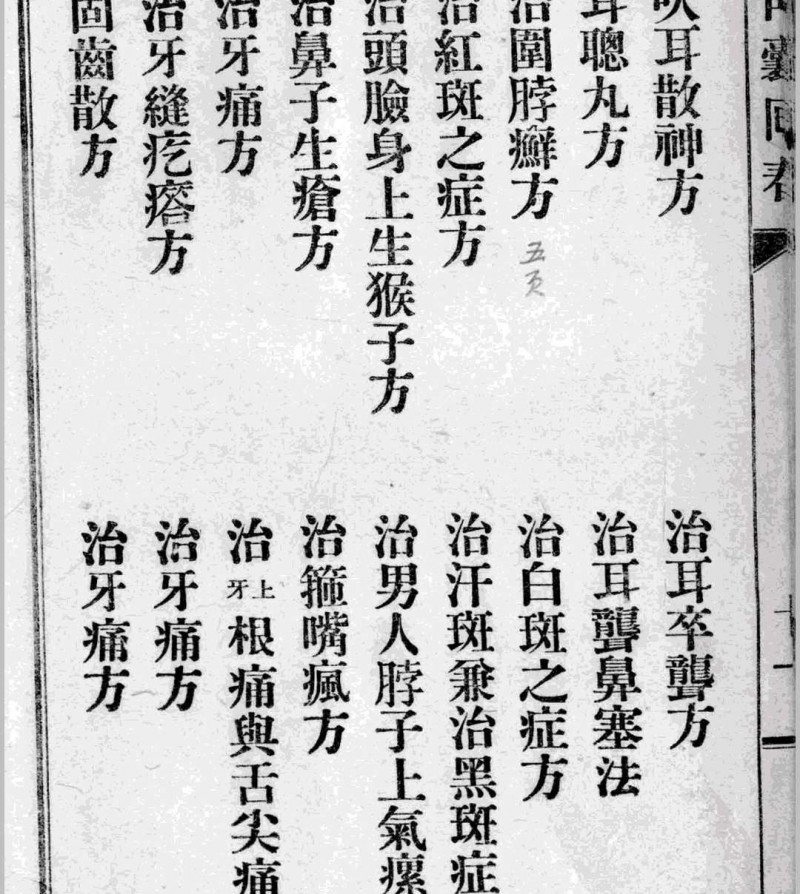 囊回春
吹耳散神方
治耳卒聾方
耳聰丸方
治耳聾鼻塞法
治圍脖癬方
五页
治白斑之症方
治紅斑之症方
治汗斑兼治黑斑症
治頭臉身上生猴子方
治男人脖子上氣瘰
治鼻子生瘡方
治箍嘴瘋方
治牙痛方
治上牙根痛與舌尖痛
治牙縫疙瘩方
治牙痛方
固齒散方
治牙痛方